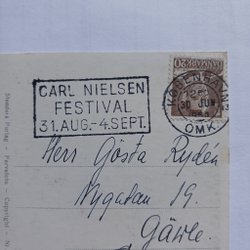 CARL NIELSEN
FESTIVAL
31. AUG.-4. SEPT.
KØBENHAVN
30 JUN
OMK.
Herr Gösta Rydén
Nygatan 19.
Gävle.
Stenders Forlag - Farvefoto - Copyright - Nr